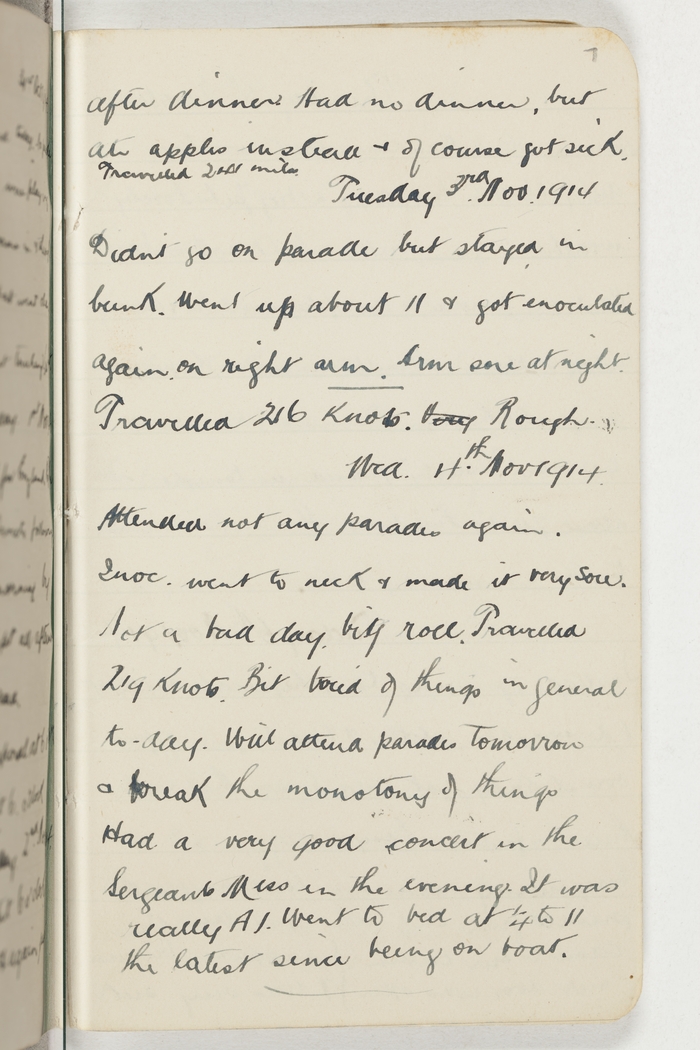 7
after dinner. Had no dinner, but
ate apples instead & of course got sick.
Travelled 248 miles.
Tuesday 3rd. Nov. 1914
Didn't go on parade but stayed in
bunk. Went up about 11 & got enoculated
again on right arm. Arm sore at night.
Travelled 216 Knots. Very Rough.
Wed. 4th. Nov 1914.
Attended not any parades again.
Inoc. went to neck & made it very sore.
Not a bad day. big roll. Travelled
219 Knots. Bit tired of things in general
to-day. Will attend parades tomorrow
& break the monotony of things
Had a very good concert in the
Sergeants Mess in the evening. It was
really A1. Went to bed at 1/4 to 11
the latest since being on boat.